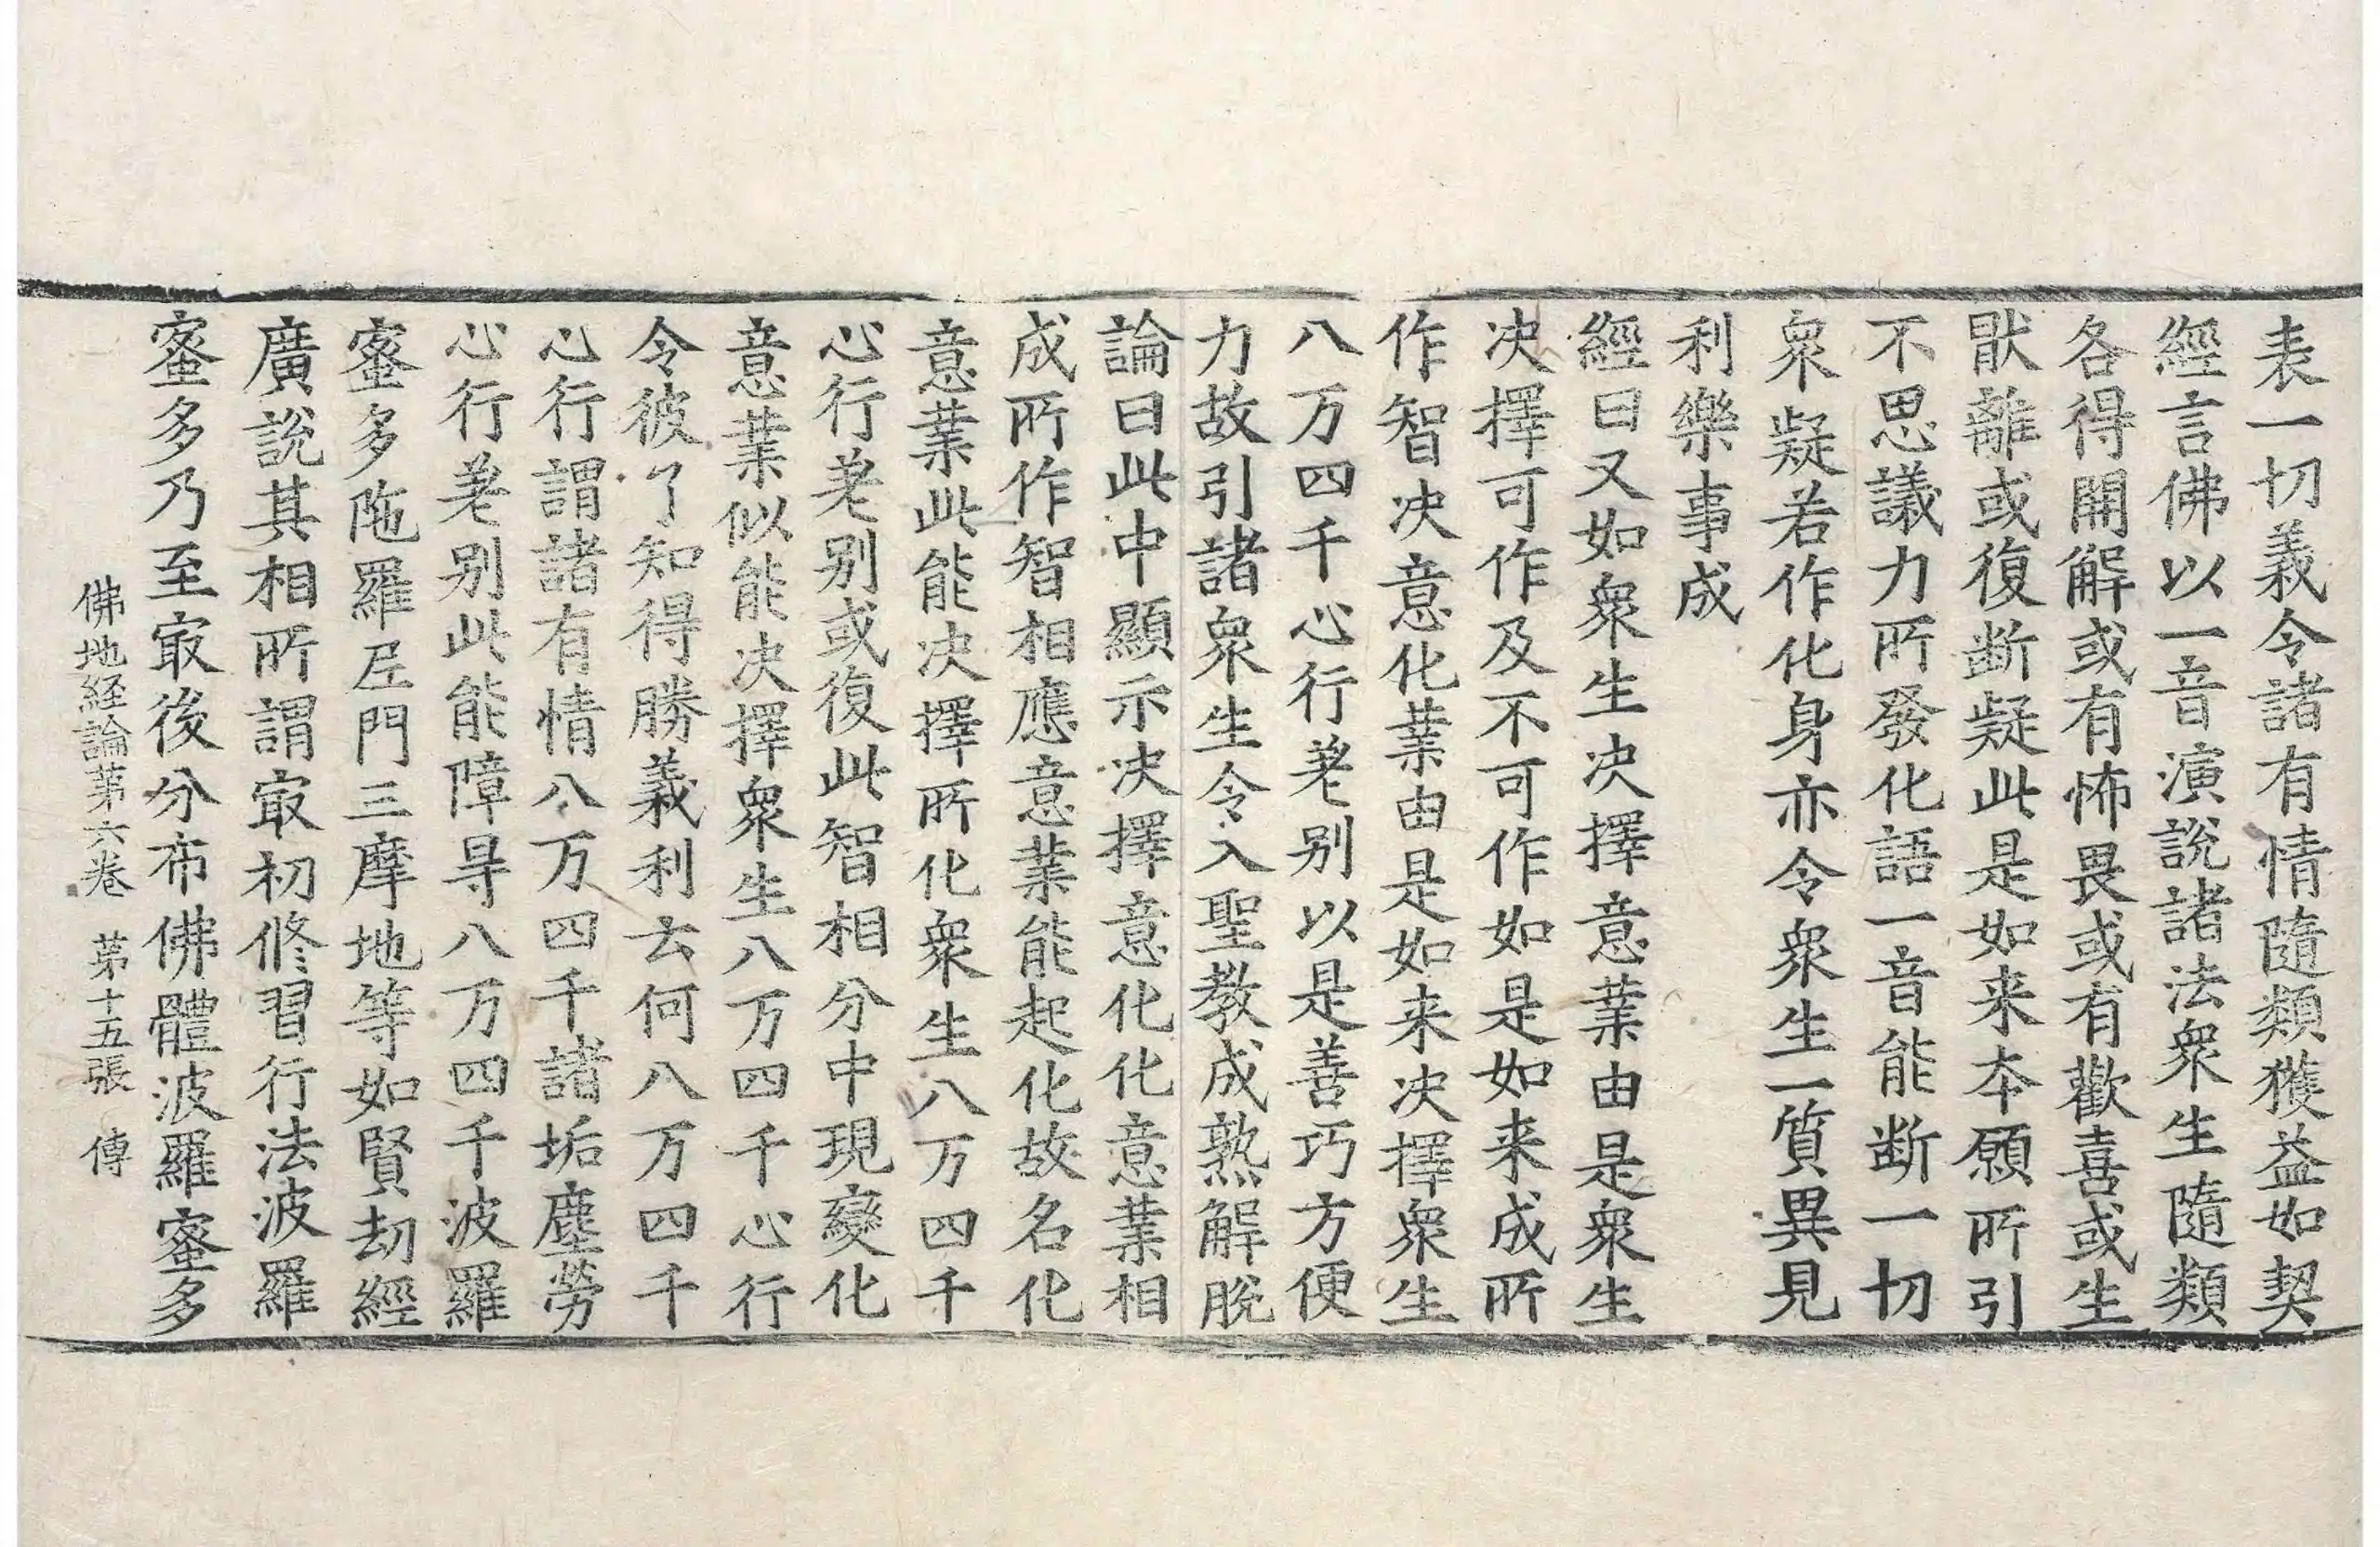 表一切義令諸有情隨類獲益如契
經言佛以一音演說諸法衆生隨類
各得開解或有怖畏或有歡喜或生
猒離或復断疑此是如来本願所引
不思議力所發化語一音能断一切
衆疑若作化身亦令衆生一質異見
利樂事成
經曰又如衆生决擇意業由是衆生
决擇可作及不可作如是如来成所
作智决意化業由是如来决擇衆生
八万四千心行差别以是善巧方便
力故引諸衆生令入聖教成熟解脫
論曰此中顯示决擇意化化意業相
成所作智相應意業能起化故名化
意業此能决擇所化衆生八万四千
心行差别或復此智相分中現變化
意業似能决擇衆生八万四千心行
令彼了知得勝義利去何八万四千
心行謂諸有情八万四千諸垢塵勞
心行差别此能障㝵八万四千波羅
蜜多陁羅尼門三摩地等如賢劫經
廣說其相所謂㝡初修習行法波羅
蜜多乃至㝡後分布佛體波羅蜜多
佛地経論苐六卷 苐十五張 傳